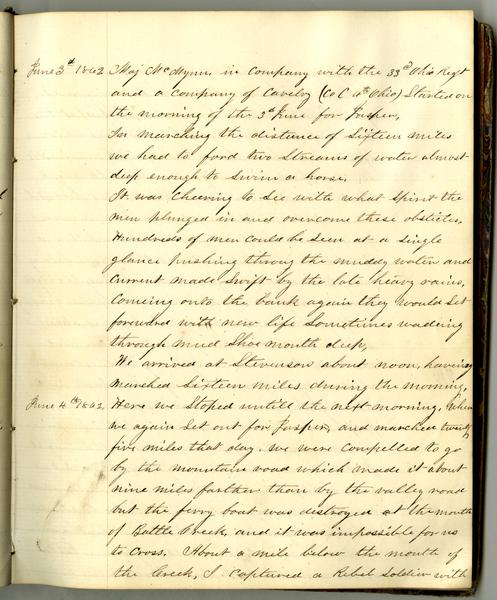 June 3d 1862 Maj McMynn, in Company with the 33d Ohio Regt
and a Company of Cavelry (Co C 4th Ohio) Started on
the morning of the 3d June for Jasper,
In marching the distance of Sixteen miles
we had to ford two Streams of water almost
deep enough to swim a horse.
It was cheering to see with what Spirit the
men plunged in and overcome these obsticles,
Hundreds of men could be Seen at a Single
glance pushing throug the muddy water and
current made swift by the late heavy rains,
Comeing onto the bank again they would Set
foreward with new life Sometimes wadeing
through mud Shoe mouth deep,
We arrived at Stevenson about noon, having
marched Sixteen miles during the morning,
June 4th 1862. Here we Stoped untill the next morning, When
we again Set out for Jasper, and marched twenty
five miles that day. we were compelled to go
by the mountain road which made it about
nine miles farther than by the valley road
but the ferry boat was destroyed at the mouth
of Battle Creek, and it was impossible for us
to cross. About a mile below the mouth of
the Creek, I captured a Rebel Soldier with